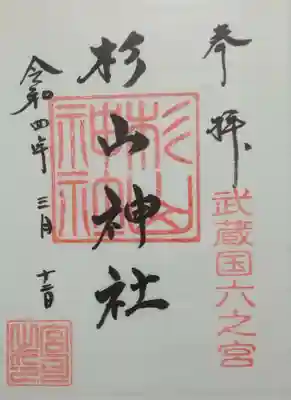 奉拝
武蔵国六之宮
杉山神社
杉山神社
令和四年三月十二日